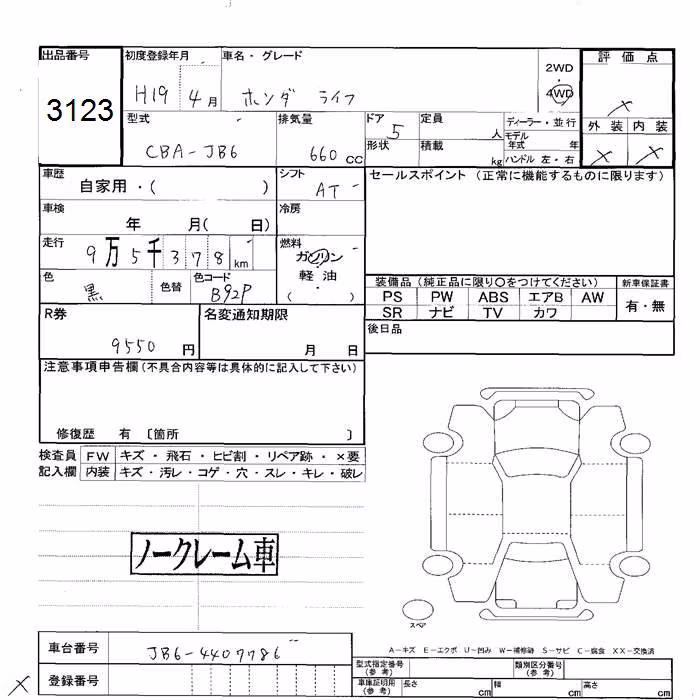 出品番号 初度登録年月 車名・グレード 2WD 評価点
3123 H19 4月 ホンダ ライフ 4WD ×
型式 排気量 ドア 定員 ディーラー・並行 外装 内装
CBA-JB6 660cc 5 人 モデル年式 年 × ×
形状 積載 kg ハンドル 左・右
車歴 自家用・( ) シフト AT セールスポイント (正常に機能するものに限ります)
車検 年 月( 日) 冷房
走行 9万5千378km 燃料 ガソリン・軽油
( )
色 黒 色替 色コード B92P 装備品 (純正品に限り〇をつけてください) 新車保証書
PS PW ABS エアB AW 有・無
SR ナビ TV カワ
R券 9550円 名変通知期限 月 日 後日品
注意事項申告欄(不具合内容等は具体的に記入して下さい)
修復歴 有 〔箇所 〕
検査員 FW キズ・飛石・ヒビ割・リペア跡・×要
記入欄 内装 キズ・汚レ・コゲ・穴・スレ・キレ・破レ
ノークレーム車
スペア
A-キズ E-エクボ U-凹み W-補修跡 S-サビ C-腐食 XX-交換済
車台番号 JB6-4409786
登録番号
×
型式指定番号(参考) 類別区分番号(参考)
車庫証明用(参考) 長さ cm 幅 cm 高さ cm